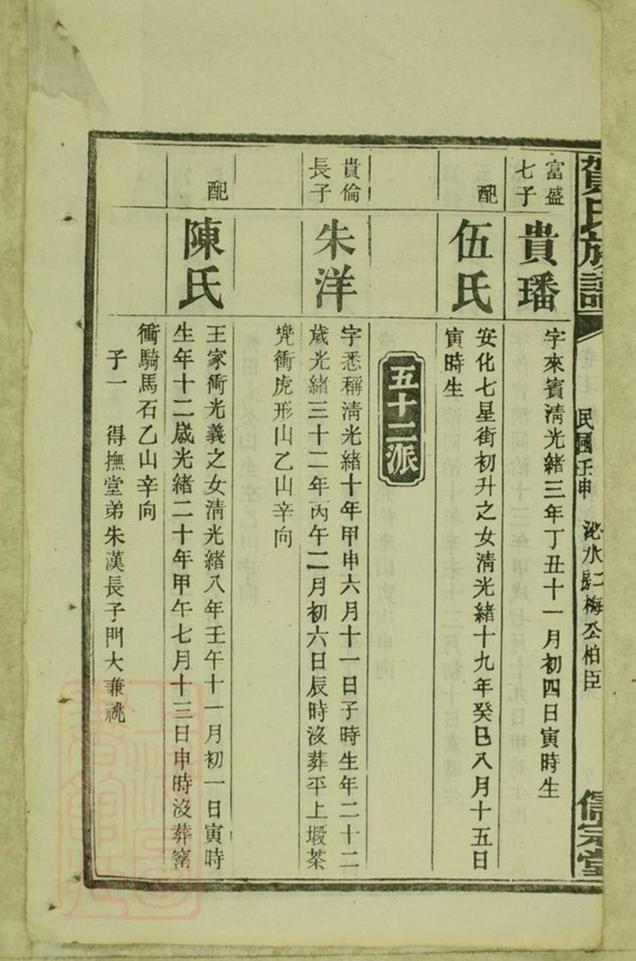 賀氏族譜
民國壬申
梅公柏臣
富盛
七子
貴璠
字來賓淸光緖三年丁丑十一月初四日寅時生
配
伍氏
安化七星街初升之女淸光緖十九年癸巳八月十五日
寅時生
五十二派
貴倫
長子
朱洋
字悉稱淸光緖十年甲申六月十一日子時生年二十二
歲光緖三十二年丙午二月初六日辰時沒葬平上塅茶
兠衝虎形山乙山辛向
配
陳氏
王家衝光義之女淸光緖八年壬午十一月初一日寅時
生年十二歲光緖二十年甲午七月十三日申時沒葬窰
衝騎馬石乙山辛向
子一 得撫堂弟朱漢長子門大兼祧